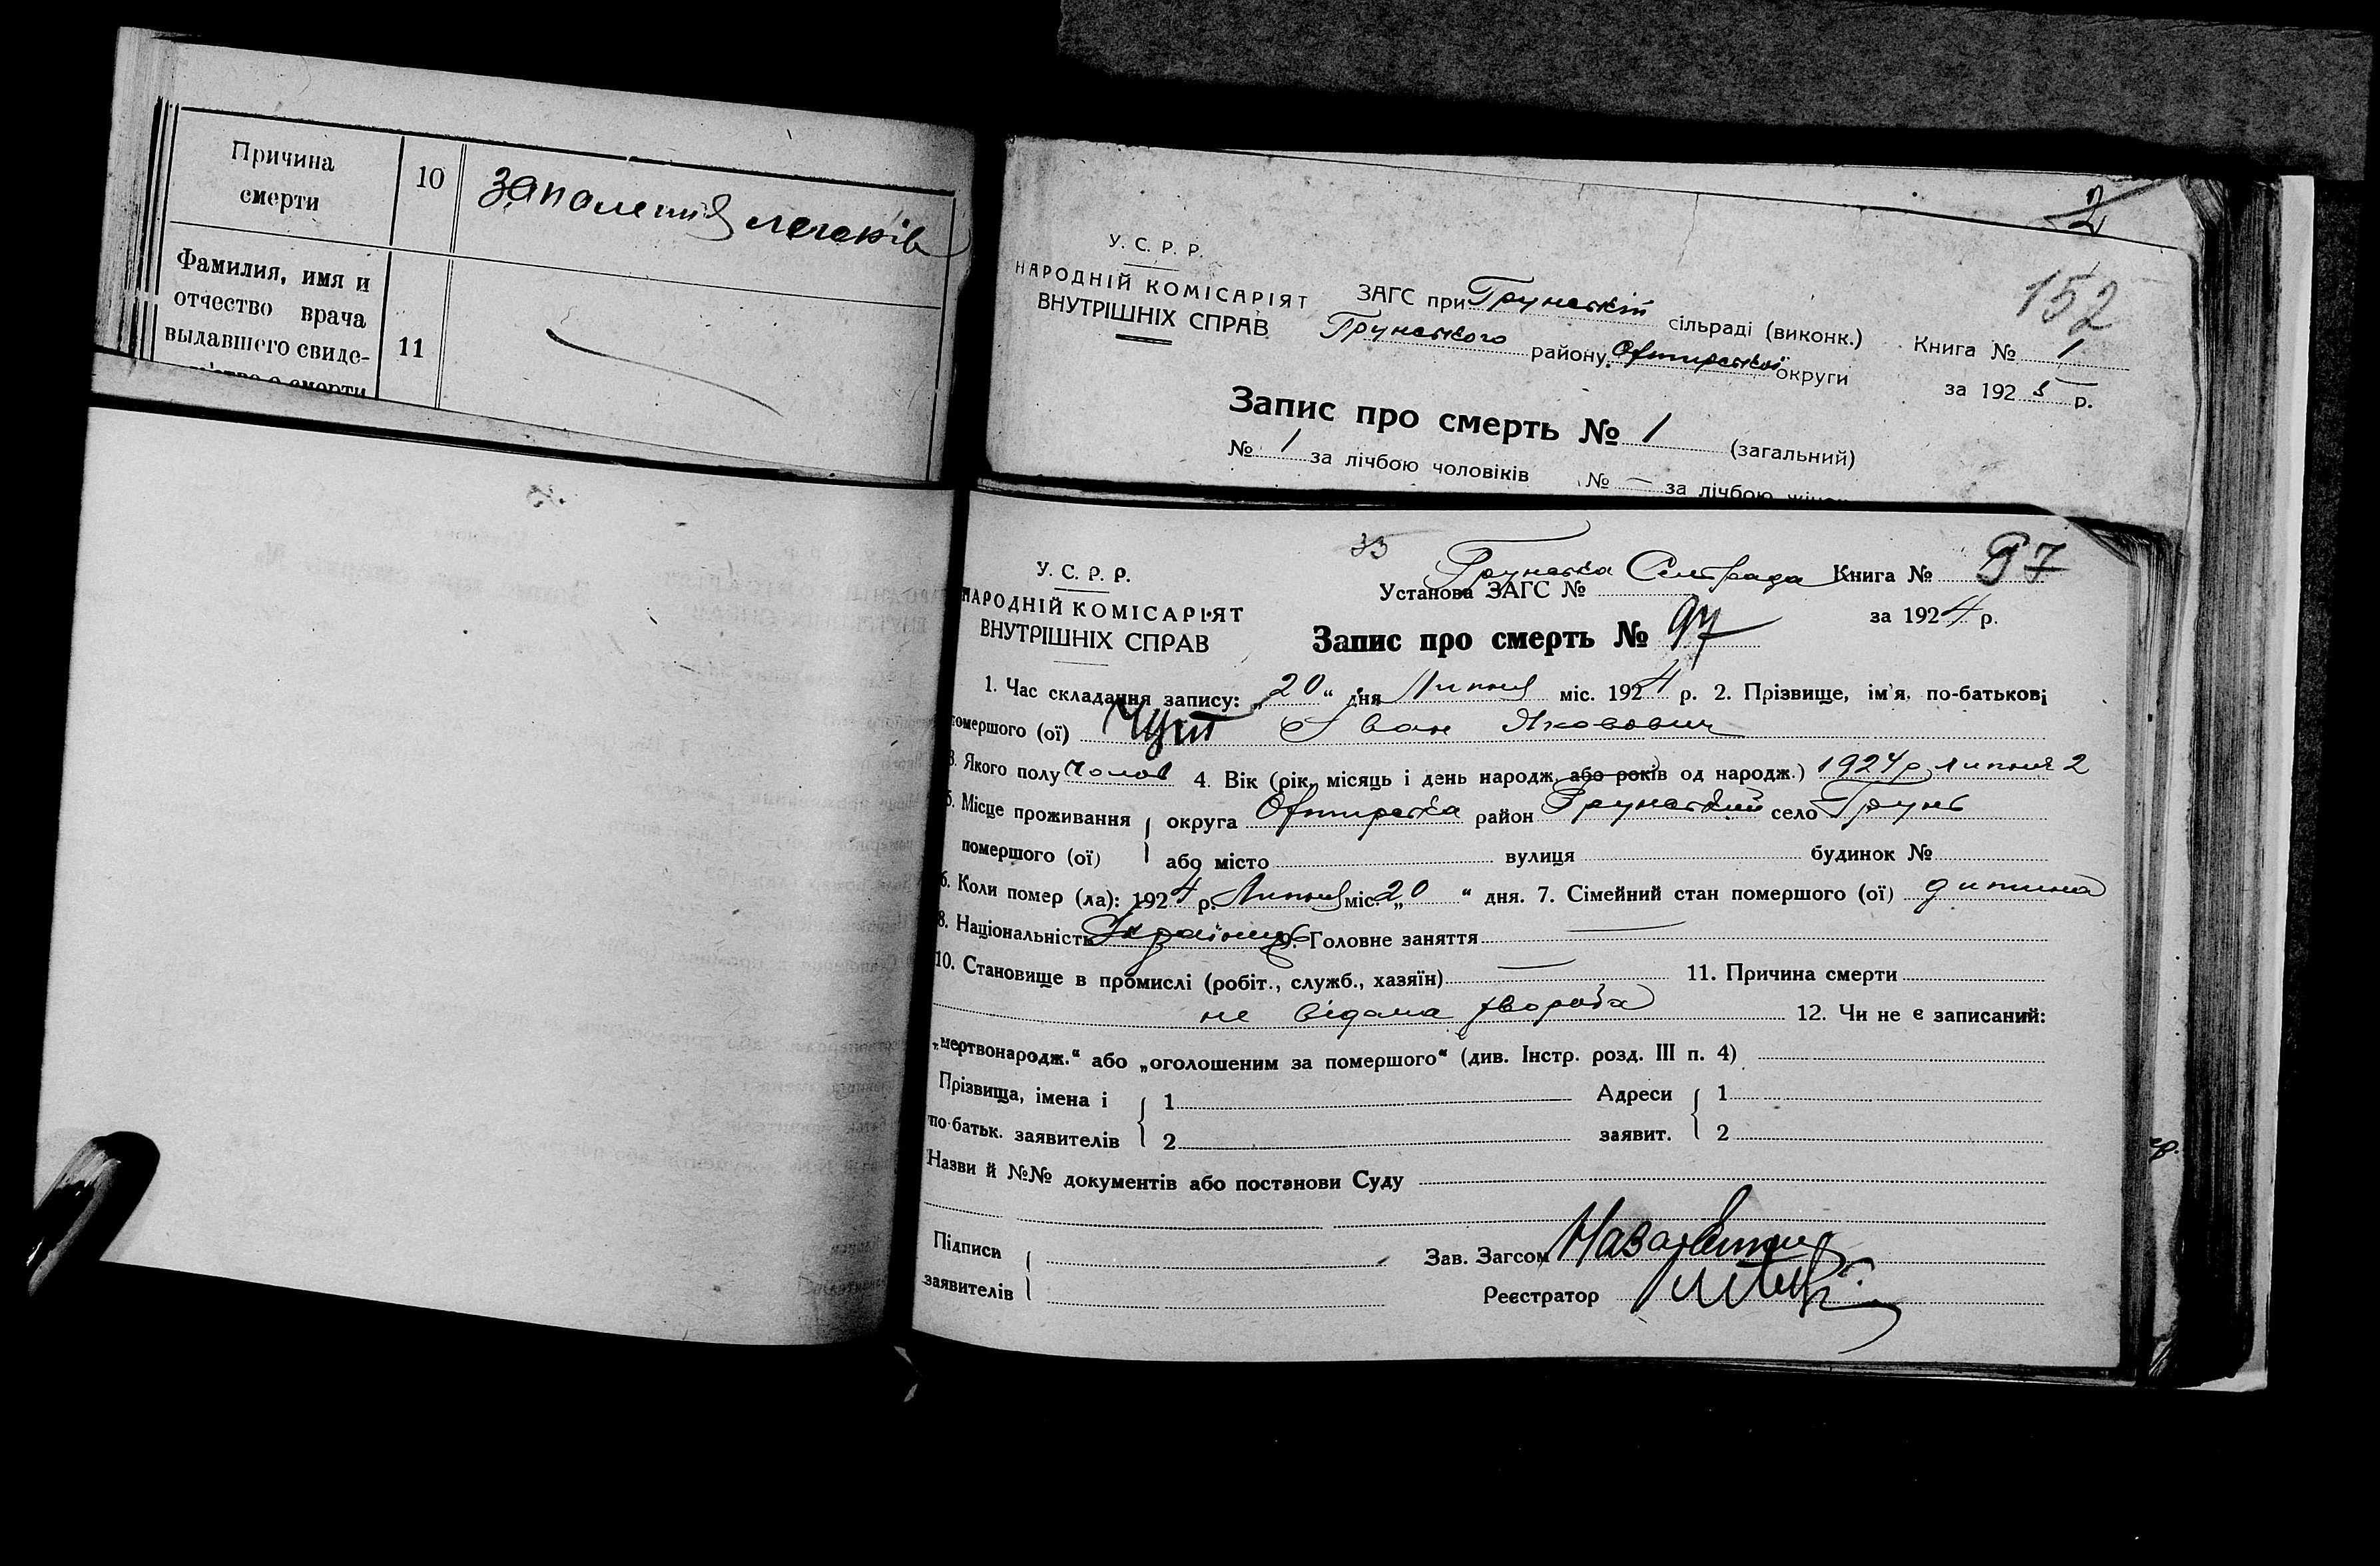 Причина
смерти
10
запаления легеків
Фамилия, имя и
отчество врача
выдавшего свиде-
11
2
152
У. С. Р. Р.
НАРОДНІЙ КОМІСАРІЯТ
ВНУТРІШНІХ СПРАВ
ЗАГС при Грунській сільраді (виконк.)
Грунського району Охтирської округи
Книга № 1
за 1925 р.
Запис про смерть № 1 (загальний)
№ 1 за лічбою чоловіків № — за лічбою
33
У. С. Р. Р.
НАРОДНІЙ КОМІСАРІЯТ
ВНУТРІШНІХ СПРАВ
Грунська Сельрада
Установа ЗАГС №
Книга № 97
за 1924 р.
Запис про смерть № 97
1. Час складання запису: „20“ дня Липня міс. 1924 р. 2. Прізвище, ім'я, по-батькові
помершого (ої) Іван Якович
3. Якого полу чолов 4. Вік (рік, місяць і день народж. або років од народж.) 1924 р липня 2
5. Місце проживання округа Охтирська район Грунський село Грунь
помершого (ої) або місто вулиця будинок №
6. Коли помер (ла): 1924 р. Липня міс. „20“ дня. 7. Сімейний стан помершого (ої) дитина
8. Національність Українець 9. Головне заняття —
10. Становище в промислі (робіт., служб., хазяїн) — 11. Причина смерти
не відома хвороба 12. Чи не є записаний:
„мертвонародж.“ або „оголошеним за помершого“ (див. Інстр. розд. III п. 4)
Прізвища, імена і 1 Адреси 1
по-батьк. заявителів 2 заявит. 2
Назви й №№ документів або постанови Суду
Підписи
заявителів
Зав. Загсом
Реєстратор